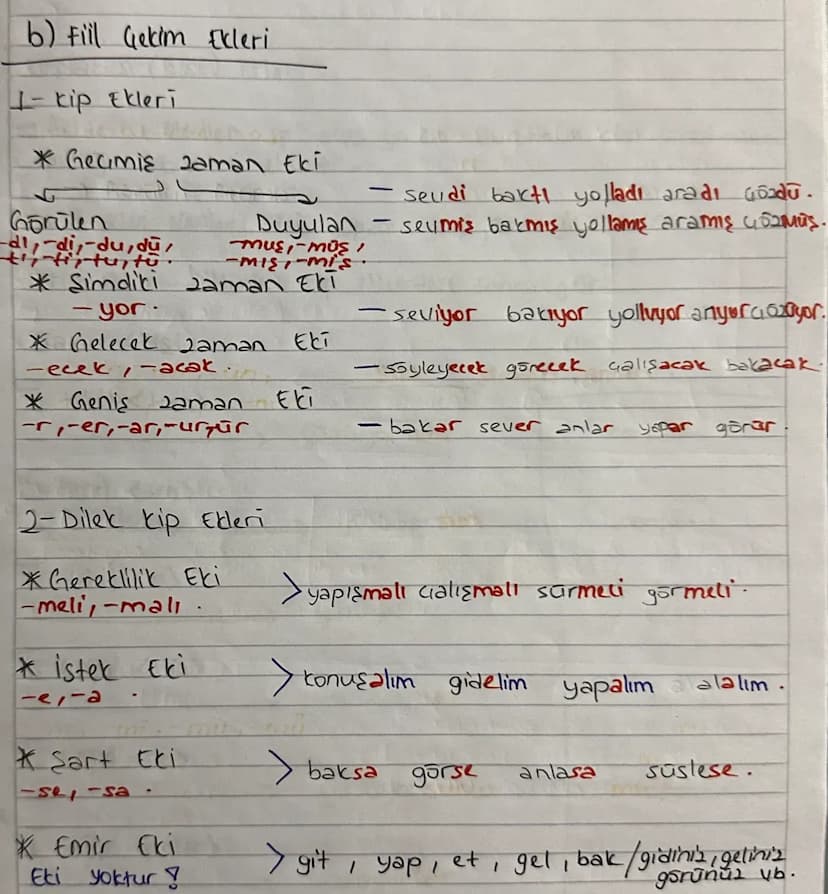 b) Fiil Çekim Ekleri
1- Kip Ekleri
* Geçmiş zaman Eki
- sevdi baktı yolladı aradı çözdü.
Görülen Duyulan - sevmiş bakmış yollamış aramış çözmüş.
-dı, -di, -du, dü, -muş, -müş,
tı, -ti, -tu, tü. -mış, -miş.
* Şimdiki zaman Eki
-yor. - seviyor bakıyor yolluyor arıyor çözüyor.
* Gelecek zaman Eki
-ecek, -acak. - söyleyecek görecek çalışacak bakacak.
* Geniş zaman Eki
-r, -er, -ar, -ur, -ür - bakar sever anlar yapar görür.
2- Dilek Kip Ekleri
* Gereklilik Eki > yapışmalı çalışmalı sürmeli görmeli.
-meli, -malı.
* İstek Eki > konuşalım gidelim yapalım alalım.
-e, -a.
* Şart Eki > baksa görse anlasa süslese.
-se, -sa.
* Emir Eki > git, yap, et, gel, bak/gidiniz, geliniz
Eki yoktur! görünüz vb.